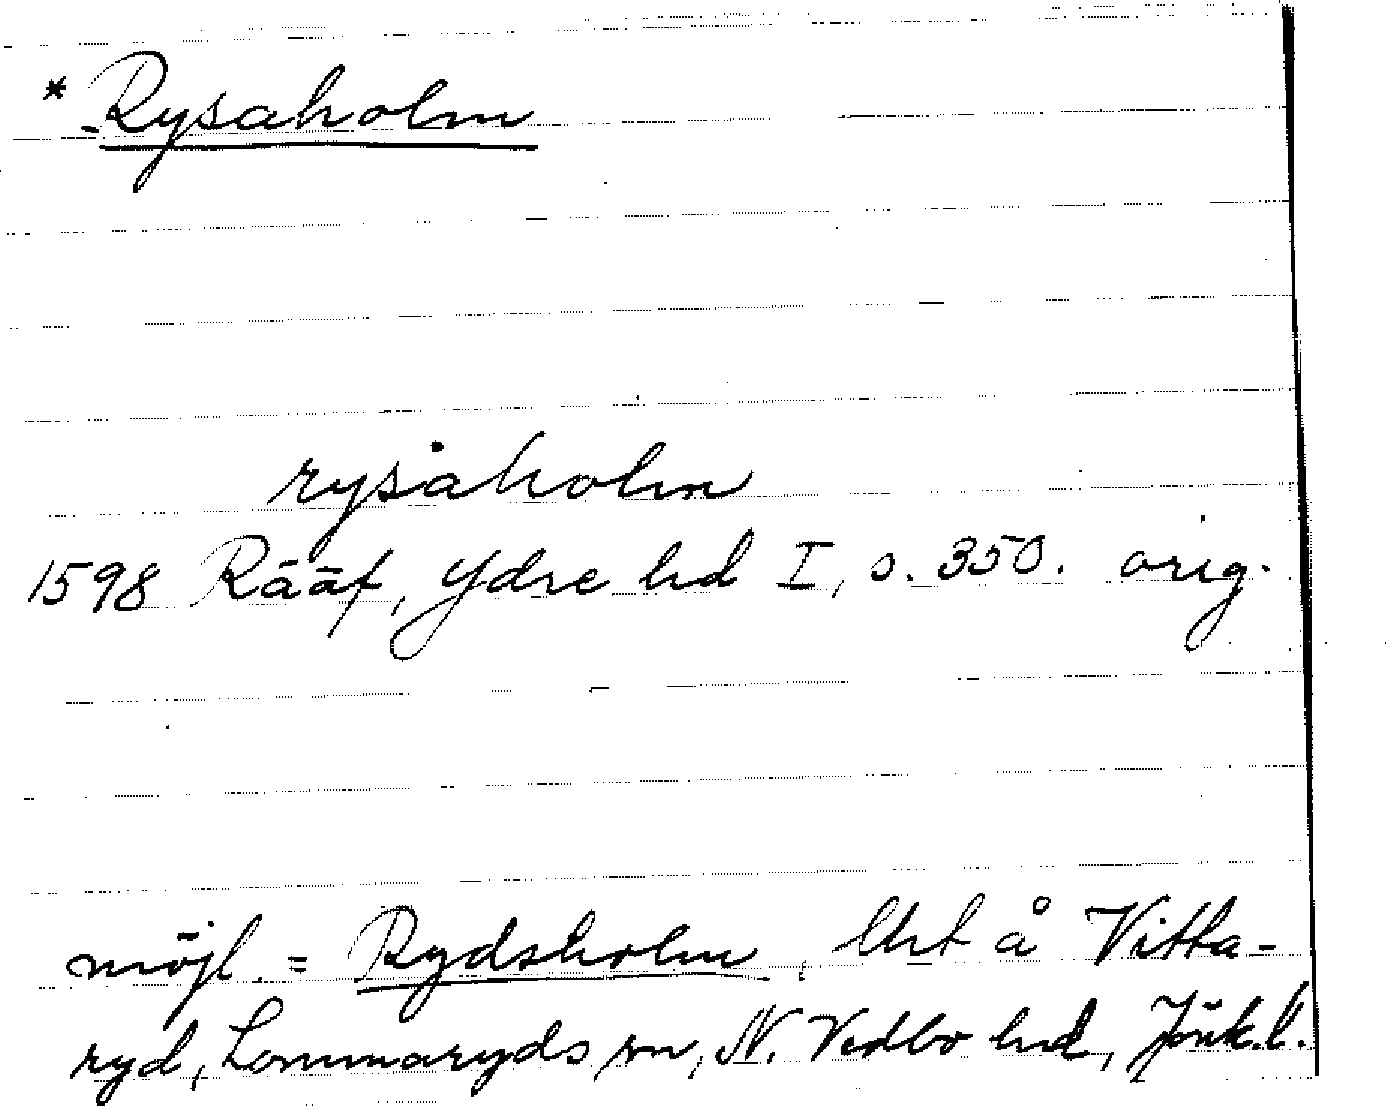 * Rysaholm
rysaholm
1598 Rääf, Ydre hd I, s. 350. orig.
möjl. = Rydsholm, lht å Vitta-
ryd, Lommaryds sn, N. Vedbo hd, Jönk. l.